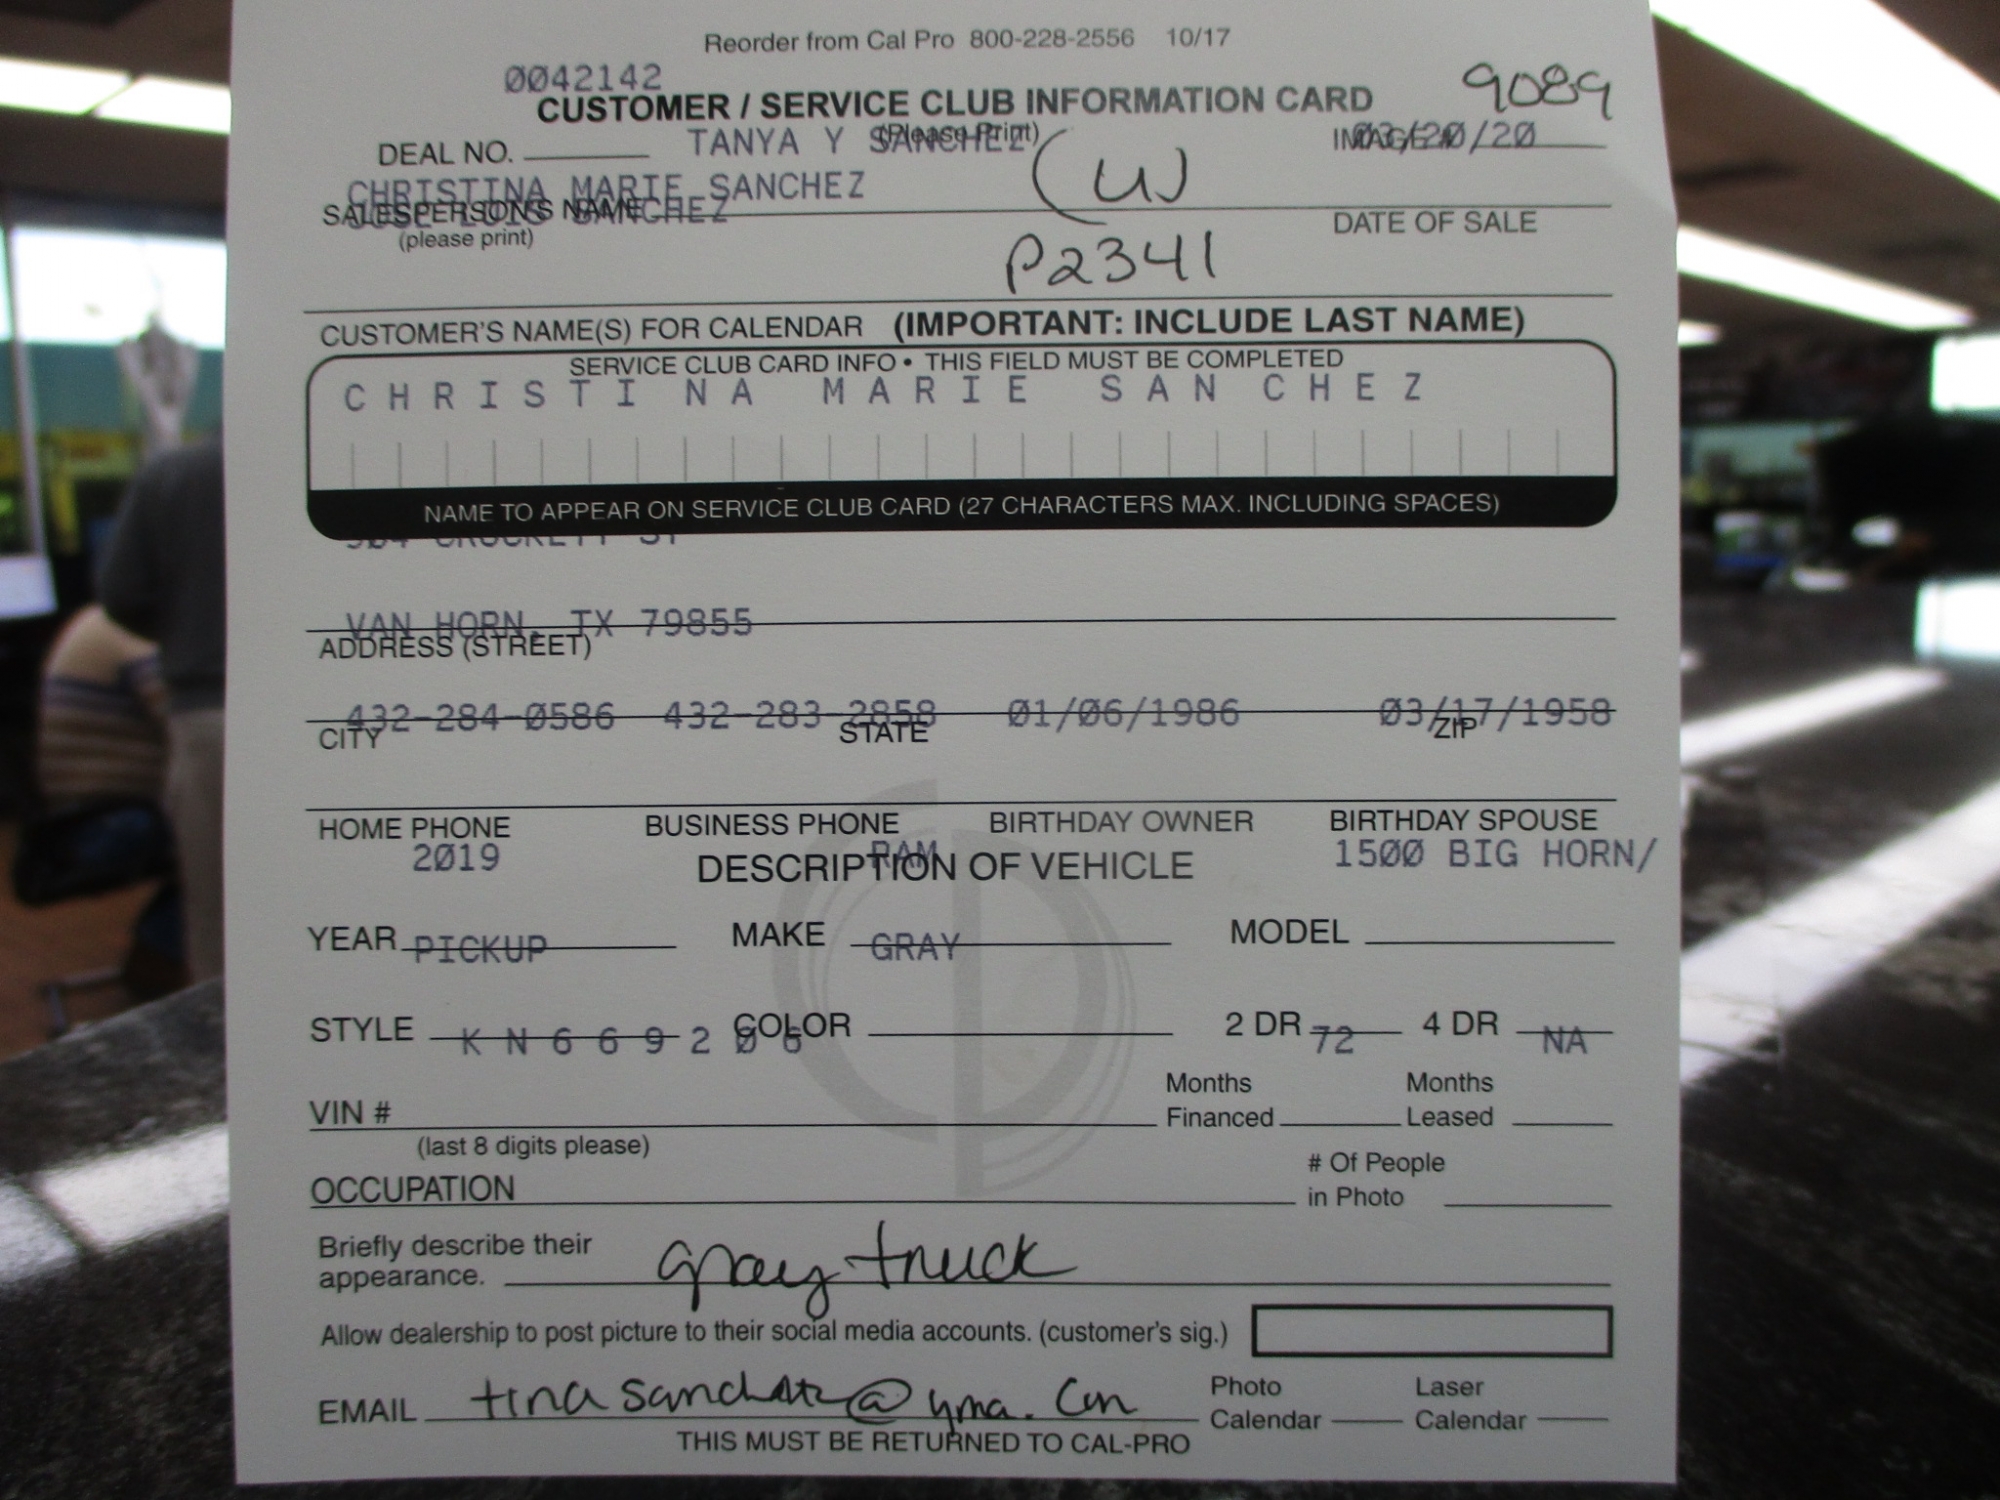 Reorder from Cal Pro 800-228-2556 10/17
0042142
CUSTOMER / SERVICE CLUB INFORMATION CARD 9089
(Please Print)
DEAL NO. TANYA Y SANCHEZ IMAGE# 03/20/20
CHRISTINA MARIE SANCHEZ (W)
JOSE LUIS SANCHEZ
SALESPERSON'S NAME DATE OF SALE
(please print)
P2341
CUSTOMER'S NAME(S) FOR CALENDAR (IMPORTANT: INCLUDE LAST NAME)
SERVICE CLUB CARD INFO • THIS FIELD MUST BE COMPLETED
CHRISTINA MARIE SANCHEZ
NAME TO APPEAR ON SERVICE CLUB CARD (27 CHARACTERS MAX. INCLUDING SPACES)
CROCKETT ST
VAN HORN, TX 79855
ADDRESS (STREET)
432-284-0586 432-283-2858 01/06/1986 03/17/1958
CITY STATE ZIP
HOME PHONE BUSINESS PHONE BIRTHDAY OWNER BIRTHDAY SPOUSE
2019 RAM 1500 BIG HORN/
DESCRIPTION OF VEHICLE
YEAR MAKE MODEL
PICKUP GRAY
STYLE COLOR 2 DR 4 DR
KN669206 72 NA
VIN # Months Financed Months Leased
(last 8 digits please)
OCCUPATION # Of People in Photo
Briefly describe their appearance. gray truck
Allow dealership to post picture to their social media accounts. (customer's sig.)
EMAIL Photo Calendar Laser Calendar
THIS MUST BE RETURNED TO CAL-PRO